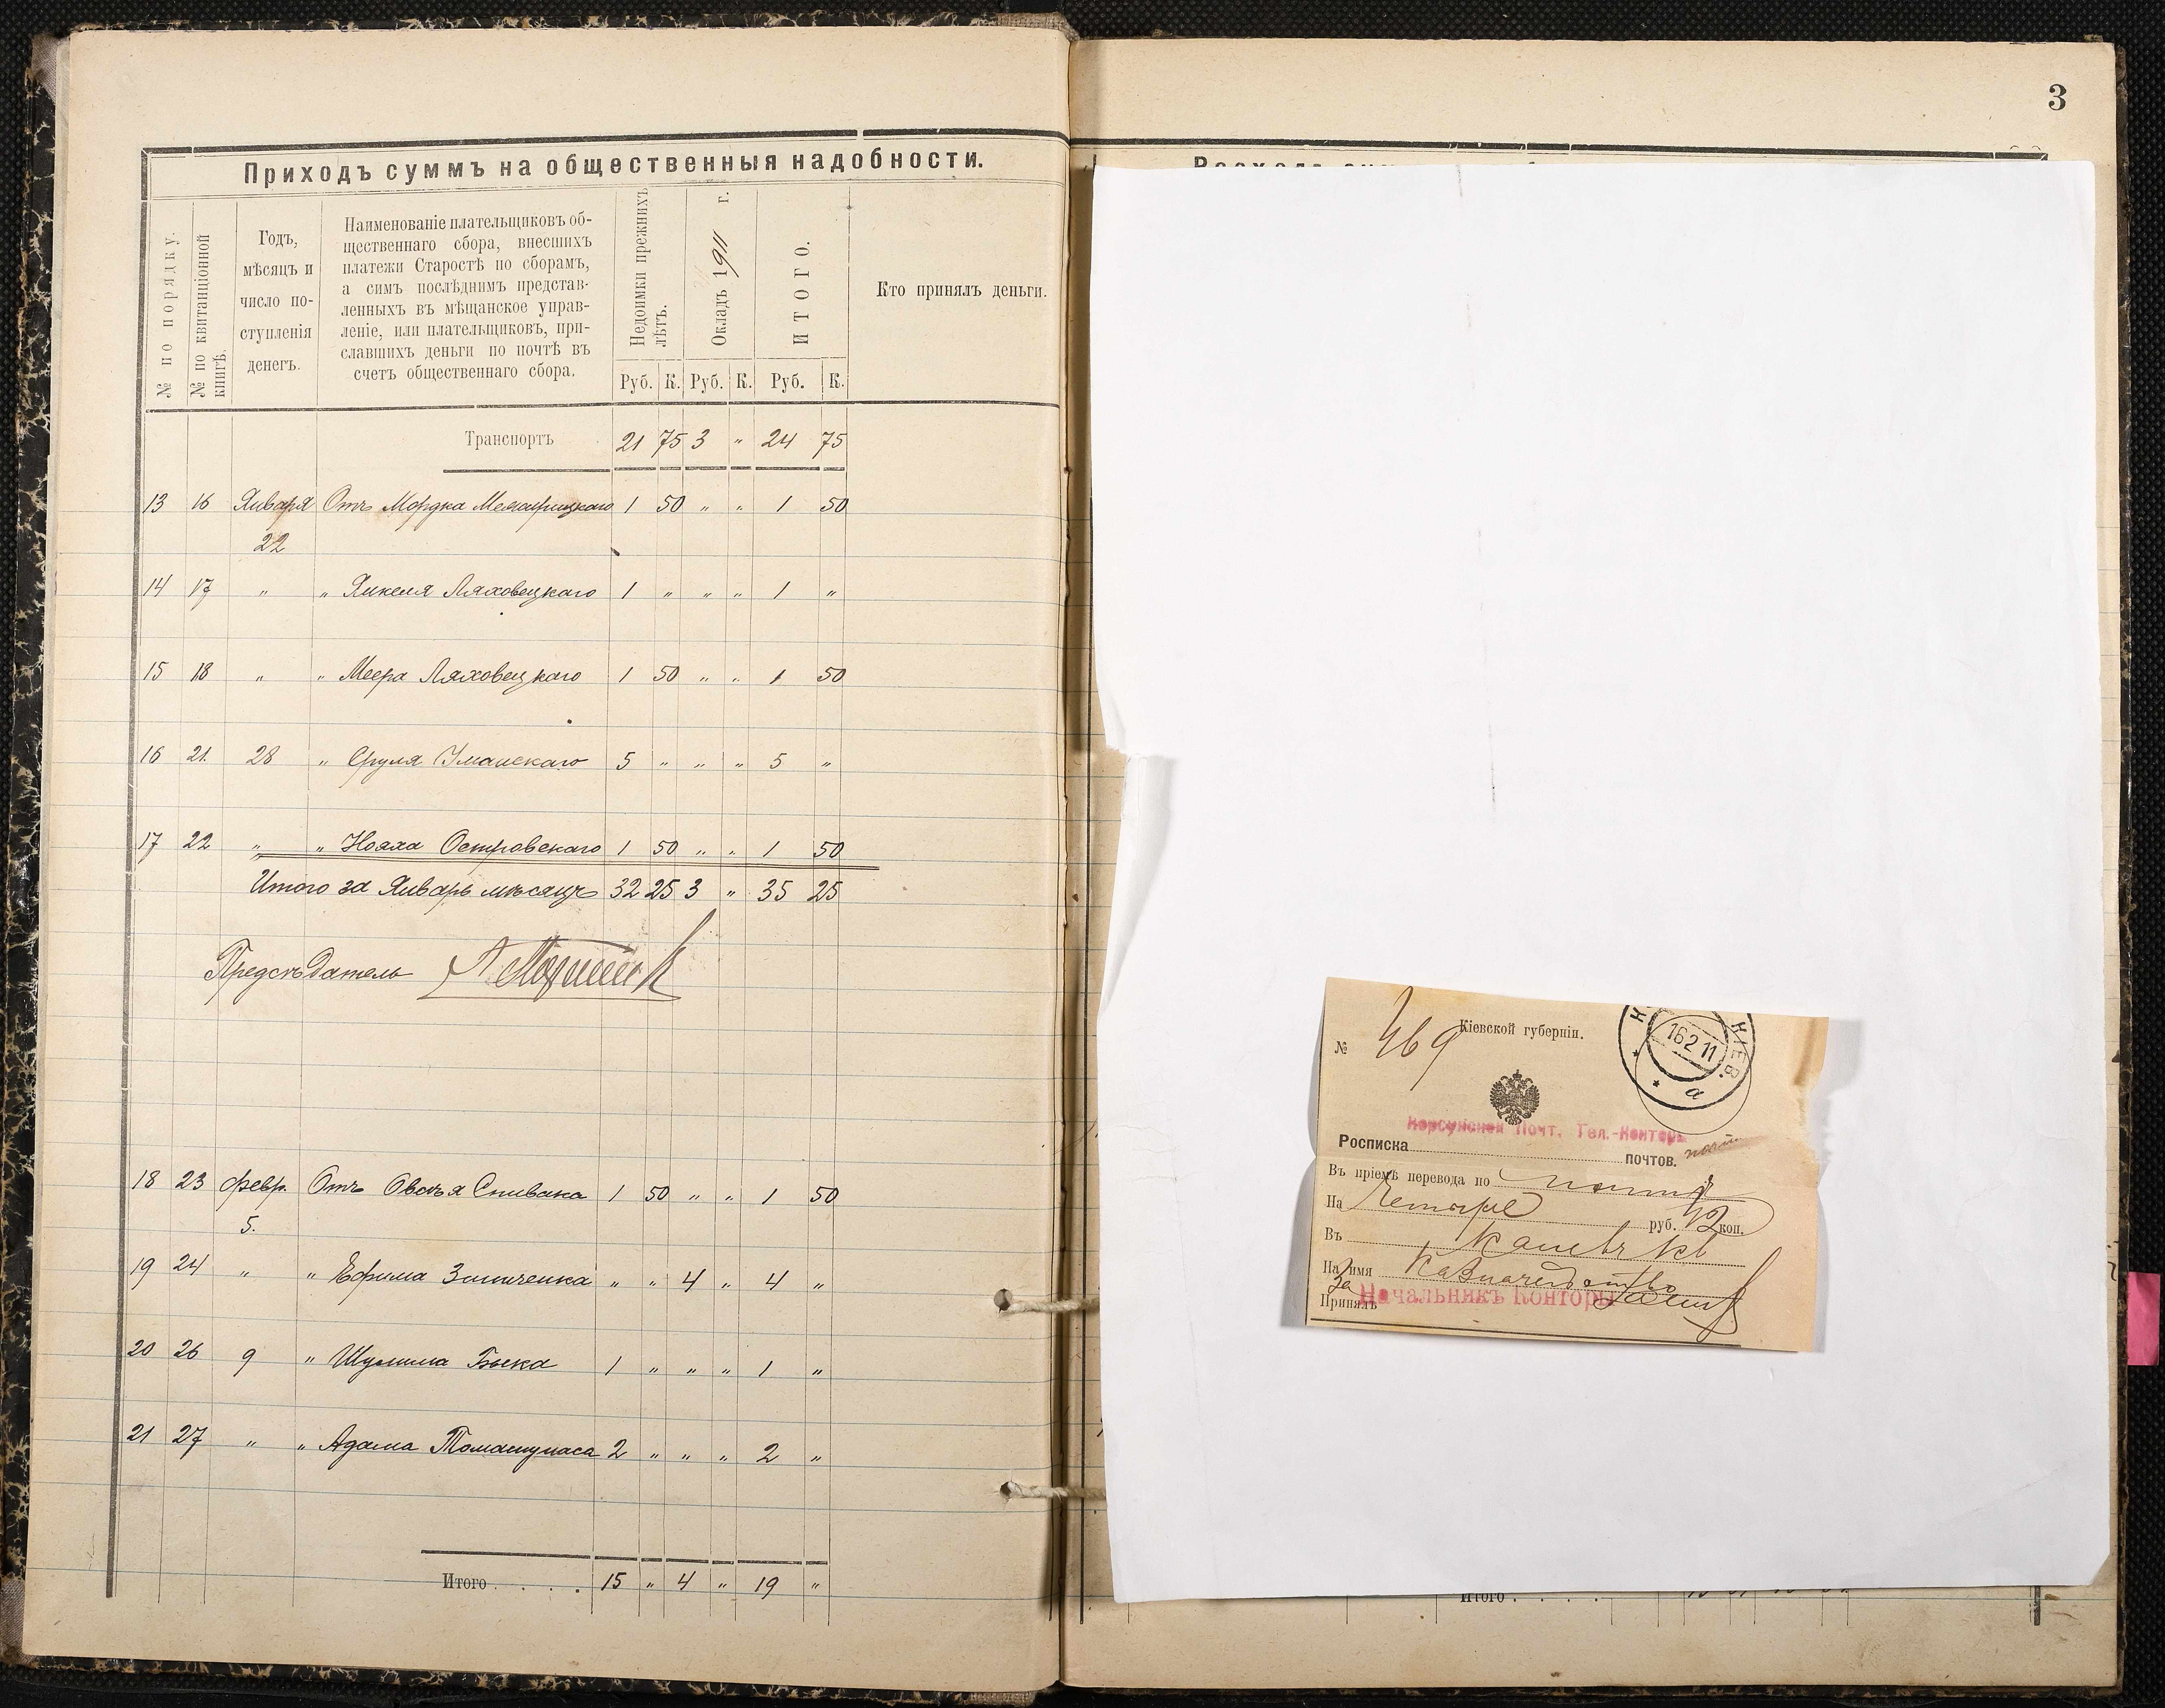 3
Приходъ суммъ на общественныя надобности.
№ по порядку.
№ по квитанціонной книгѣ.
Годъ,
мѣсяцъ и
число по-
ступленія
денегъ.
Наименованіе плательщиковъ об-
щественнаго сбора, внесшихъ
платежи Старостѣ по сборамъ,
а симъ послѣднимъ представ-
ленныхъ въ мѣщанское управ-
леніе, или плательщиковъ, при-
славшихъ деньги по почтѣ въ
счетъ общественнаго сбора.
Недоимки прежнихъ лѣтъ.
Окладъ 1911 г.
ИТОГО.
Кто принялъ деньги.
Руб. К. Руб. К. Руб. К.
Транспортъ 21 75 3 " 24 75
13 16 Января Отъ Мордка 1 50 " " 1 50
22
14 17 " " Янкеля Ляховецкаго 1 " " " 1 "
15 18 " " Меера Ляховецкаго 1 50 " " 1 50
16 21. 28 " Сруля Уманскаго 5 " " " 5 "
17 22 " " Нояха Островскаго 1 50 " " 1 50
Итого за Январь мѣсяцъ 32 25 3 " 35 25
Предсѣдатель
18 23 февр. Отъ Овсѣя Спивака 1 50 " " 1 50
5.
19 24 " " Ефима Зинченка " " 4 " 4 "
20 26 9 " Шулима Быка 1 " " " 1 "
21 27 " " Адама 2 " " " 2 "
Итого . . . . 15 " 4 " 19 "
Кіевской губерніи.
№ 469
КІЕВ.
16 2 11
а
Корсунской Почт. Тел.-Контор
Росписка почтов.
Въ пріемѣ перевода по почтѣ
На Четыре руб. 42 коп.
Въ Каневъ Кв
На имя Казначейство
За
Принялъ Начальникъ Конторы
Итого . . . .